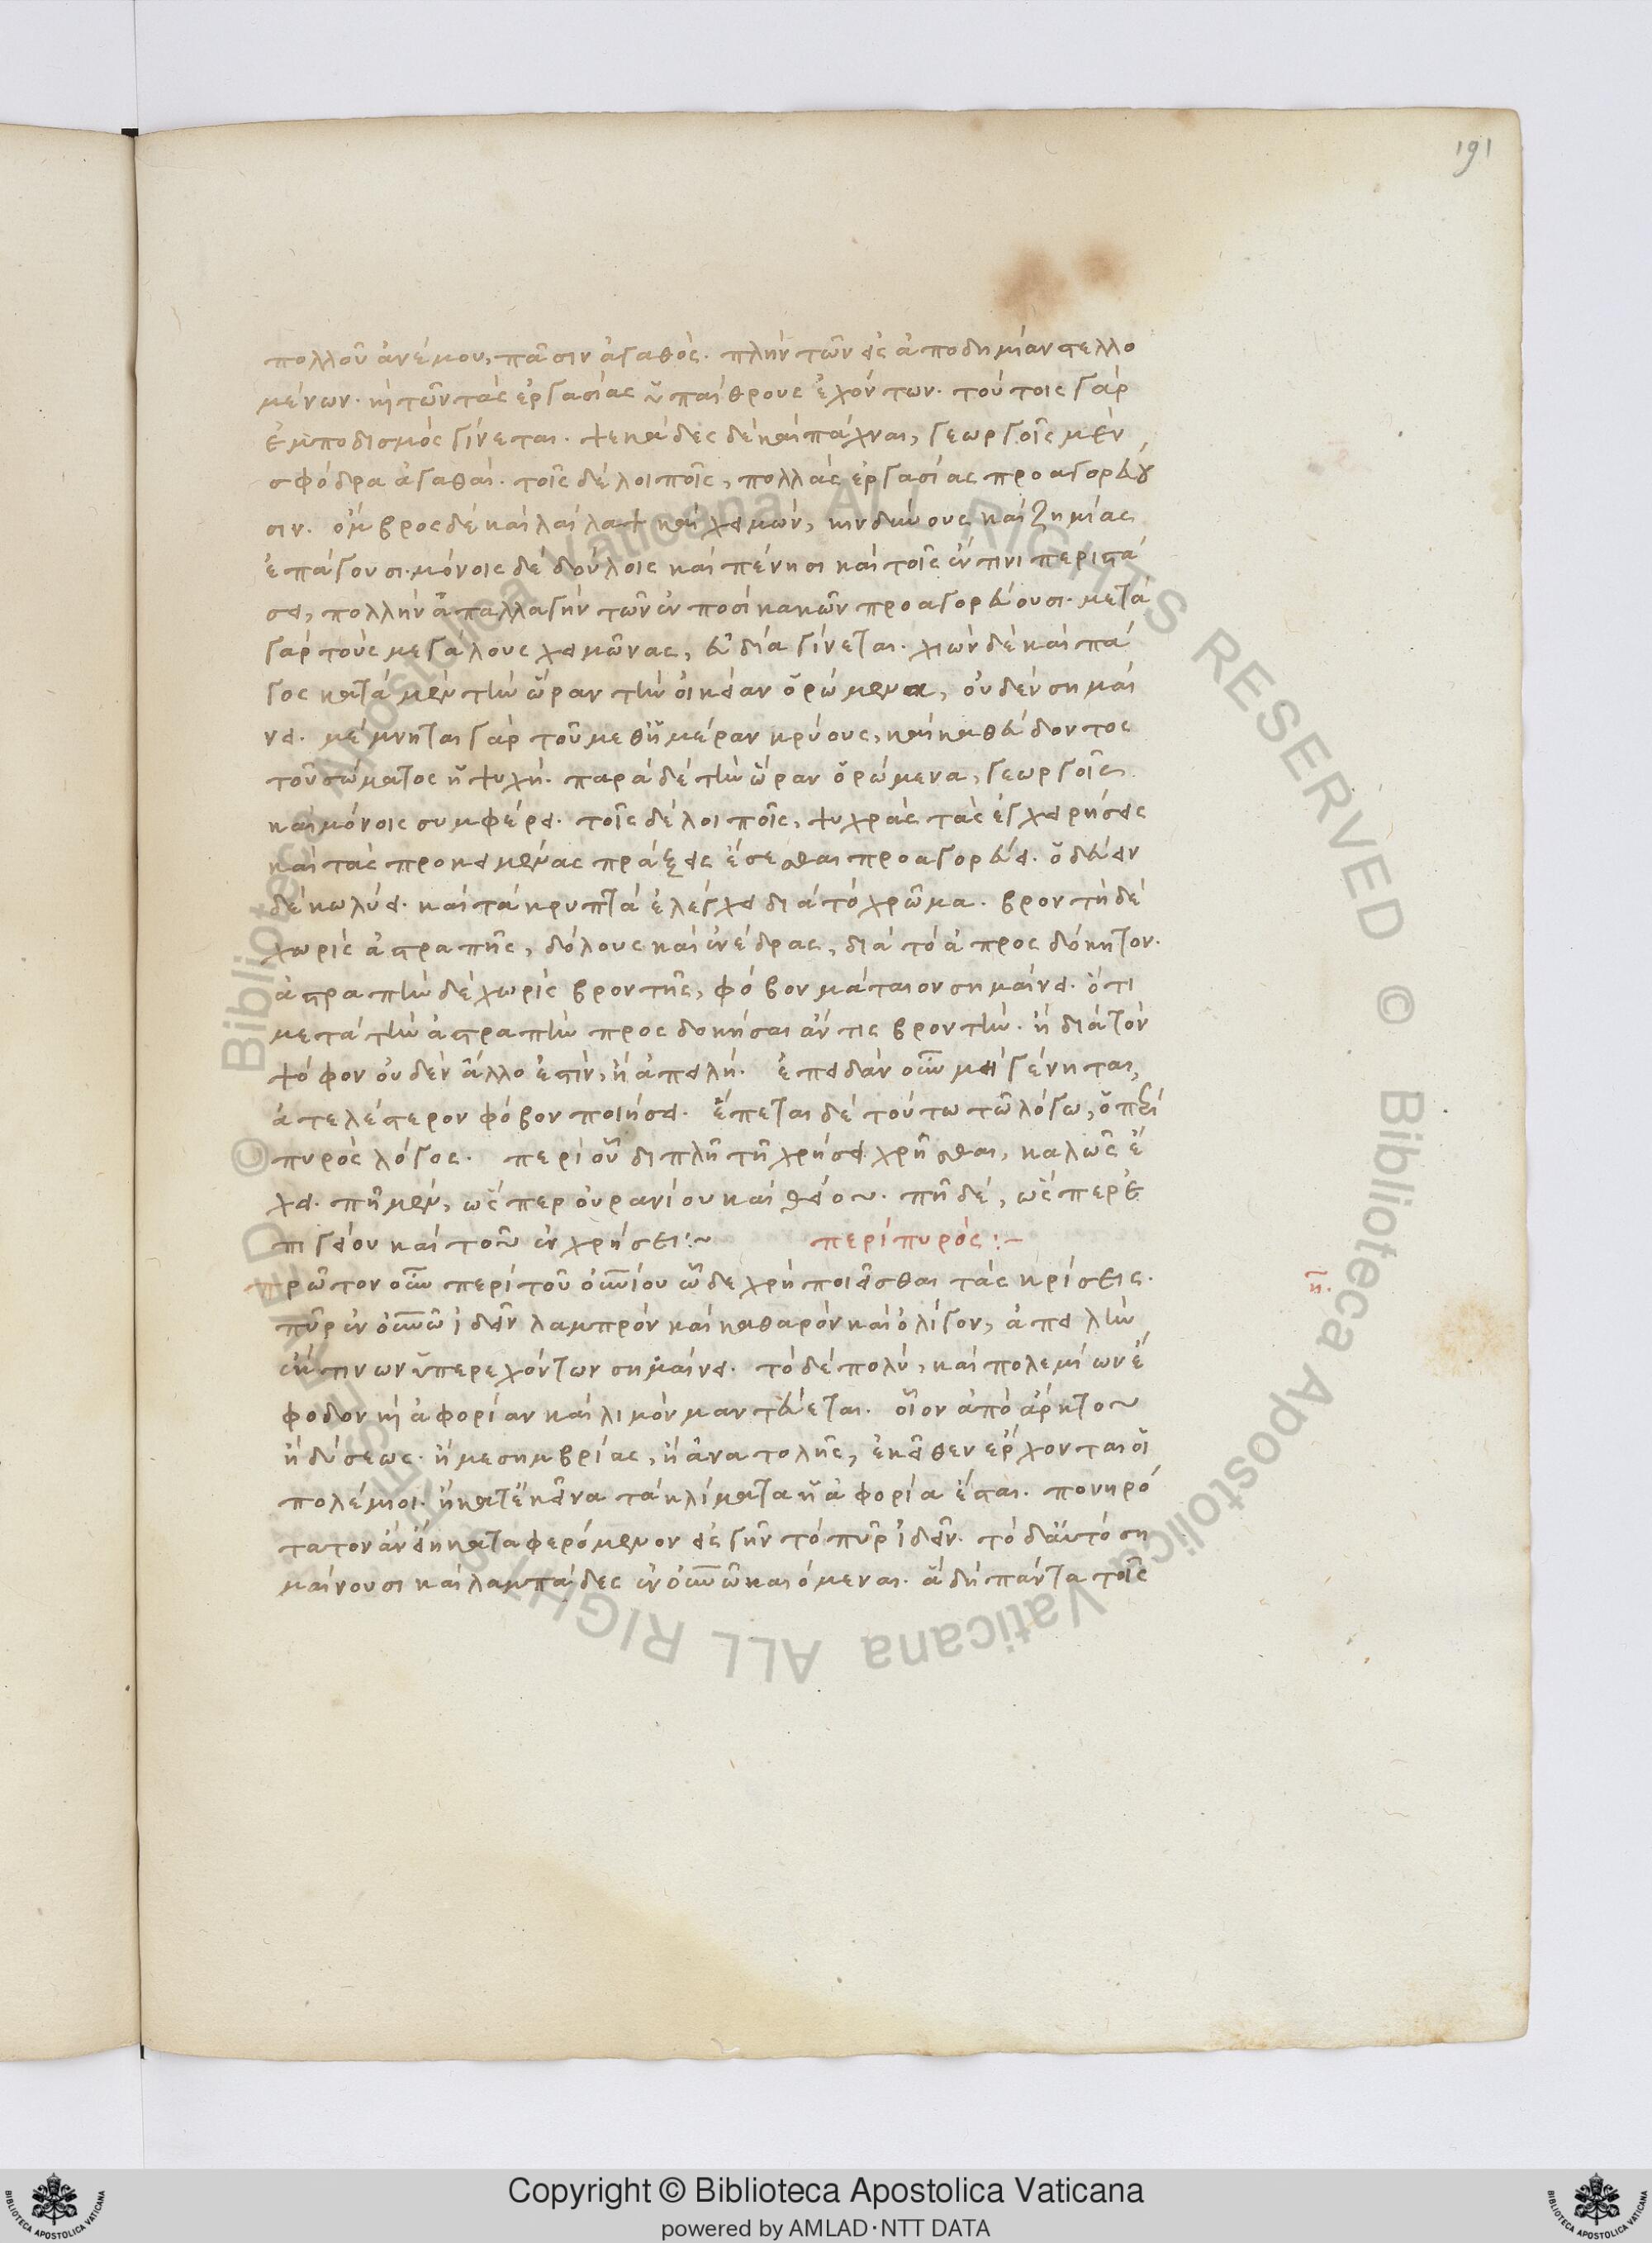 191
πολλοῦ ἀνέμου, πᾶσιν ἀγαθός. πλὴν τῶν εἰς ἀποδημίαν στελλο
μένων. καὶ τῶν τὰς ἐργασίας ὑπαίθρους ἐχόντων. τούτοις γὰρ
ἐμποδισμὸς γίνεται. ψεκάδες δὲ καὶ πάχναι, γεωργοῖς μὲν
σφόδρα ἀγαθαί. τοῖς δὲ λοιποῖς, πολλὰς ἐργασίας προαγορεύου
σιν. ὄμβρος δὲ καὶ λαίλαψ καὶ χειμών, κινδύνους καὶ ζημίας
ἐπάγουσι. μόνοις δὲ δούλοις καὶ πένησι καὶ τοῖς ἔν τινι περιστά
σει, πολλὴν ἀπαλλαγὴν τῶν ἐν ποσὶ κακῶν προαγορεύουσι. μετὰ
γὰρ τοὺς μεγάλους χειμῶνας, εὐδία γίνεται. χιὼν δὲ καὶ πά
γος κατὰ μὲν τὴν ὥραν τὴν οἰκείαν ὁρώμενα, οὐδὲν σημαί
νει. μέμνηται γὰρ τοῦ μεθημέραν κρύους, καὶ καθεύδοντος
τοῦ σώματος ἡ ψυχή. παρὰ δὲ τὴν ὥραν ὁρώμενα, γεωργοῖς
καὶ μόνοις συμφέρει. τοῖς δὲ λοιποῖς, ψυχρὰς τὰς ἐγχειρήσεις
καὶ τὰς προκειμένας πράξεις ἔσεσθαι προαγορεύει. ὁδεύειν
δὲ κωλύει. καὶ τὰ κρυπτὰ ἐλέγχει διὰ τὸ χρῶμα. βροντὴ δὲ
χωρὶς ἀστραπῆς, δόλους καὶ ἐνέδρας, διὰ τὸ ἀπροσδόκητον.
ἀστραπὴν δὲ χωρὶς βροντῆς, φόβον μάταιον σημαίνει. ὅτι
μετὰ τὴν ἀστραπὴν προσδοκήσαι ἄν τις βροντήν. ἡ διὰ τὸν
ψόφον οὐδὲν ἄλλο ἐστίν, ἢ ἀπειλή. ἐπειδὰν οὖν μὴ γένηται,
ἀτελέστερον φόβον ποιήσει. ἕπεται δὲ τούτω τῶ λόγω, ὁ περὶ
πυρὸς λόγος. περὶ οὗ διπλῆ τῆ χρήσει χρῆσθαι, καλῶς ἔ
χει. πῆ μὲν, ὥσπερ οὐρανίου καὶ θείου. πῆ δὲ, ὥσπερ ἐ
πιγείου καὶ τοῦ ἐν χρήσει:~ περὶ πυρός:~
πρῶτον οὖν περὶ τοῦ οὐνίου ὧδε χρὴ ποιεῖσθαι τὰς κρίσεις.
πῦρ ἐν οὐνῶ ἰδεῖν λαμπρὸν καὶ καθαρὸν καὶ ὀλίγον, ἀπειλὴν
ἔκ τινων ὑπερεχόντων σημαίνει. τὸ δὲ πολύ, καὶ πολεμίων ἔ
φοδον καὶ ἀφορίαν καὶ λιμὸν μαντεύεται. οἷον ἀπὸ ἄρκτου
ἢ δύσεως. ἢ μεσημβρίας, ἢ ἀνατολῆς, ἐκεῖθεν ἔρχονται οἱ
πολέμιοι. ἢ κατ' ἐκεῖνα τὰ κλίματα ἡ ἀφορία ἔσται. πονηρό
τατον ἂν εἴη καταφερόμενον εἰς γῆν τὸ πῦρ ἰδεῖν. τὸ δ' αὐτὸ ση
μαίνουσι καὶ λαμπάδες ἐν οὐνῶ καιόμεναι. ἃ δὴ πάντα τοῖς
Copyright © Biblioteca Apostolica Vaticana
powered by AMLAD·NTT DATA